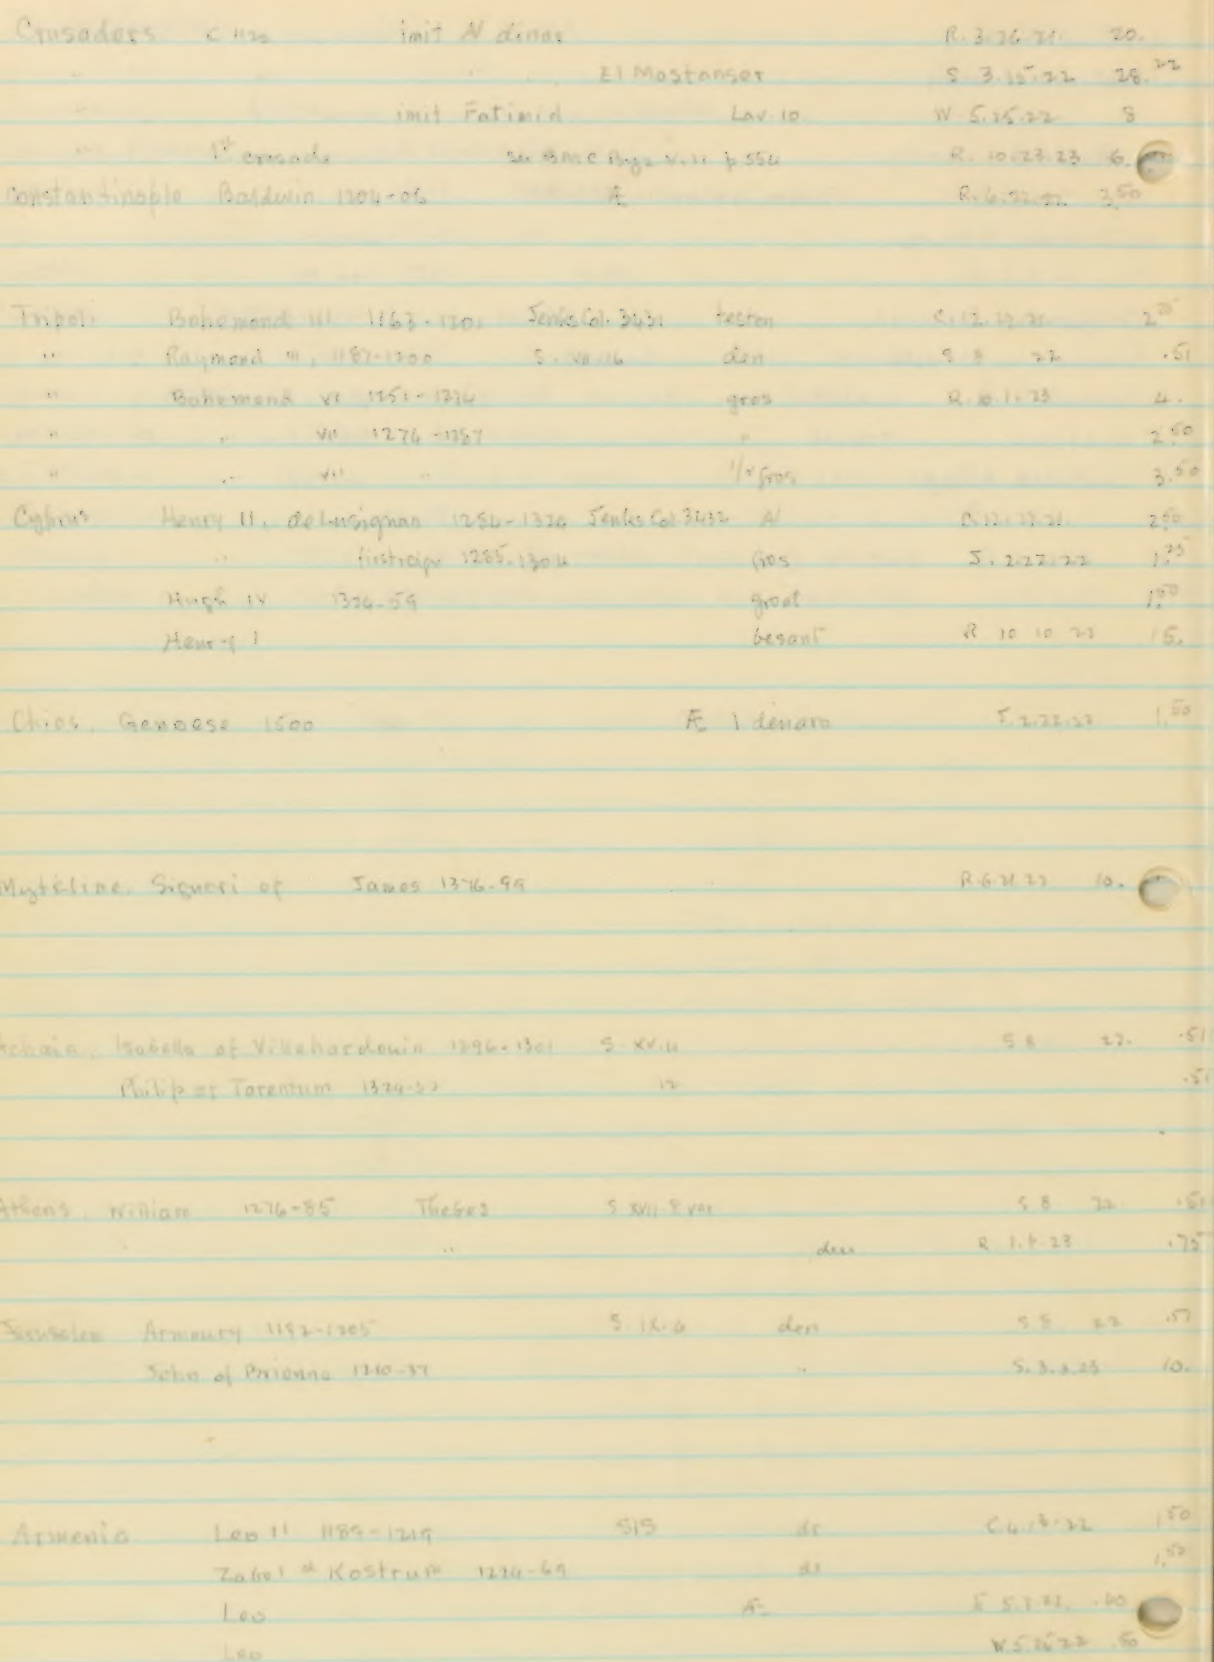 Crusaders c 1120 imit A/ dinar R. 3.26.21. 20.
" " El Mostanser S 3.15.22 28.22
" imit Fatimid Lav. 10 W 5.25.22 8
" 1st crusade see BMC Byz v. ii p 554 R. 10.23.23 6.
Constantinople Baldwin 1204-06 Æ R. 6.22.22 3.50
Tripoli Bohemond III 1163-1201 Jenks Col. 3431 teston C. 12.22.21 2
" Raymond III. 1187-1200 S. VII.16 den S 8 22 .51
" Bohemond VI 1251-1274 gros R. 10.1.23 4.
" " VII 1274-1287 " 2.50
" " VII " 1/2 gros 3.50
Cyprus Henry II. de Lusignan 1284-1324 Jenks Col. 3432 A/ C. 12.22.21. 2.50
" first reign 1285-1304 gros J. 2.22.22 1.75
Hugh IV 1324-59 groat 1.50
Henry I besant R 10 10 22 15.
Chios. Genoese 1500 Æ 1 denaro J. 2.22.22 1.50
Mytiline. Signori of James 1376-99 R. 6.21.22 10.
Achaia. Isabella of Villehardouin 1296-1301 S. XV.11 S 8 22. .51
Philip of Tarentum 1324-32 12 .51
Athens. William 1276-85 Thebes S XVII.8 var S 8 22 .51
" den R 1.1.23 .75
Jerusalem Armaury 1192-1205 S. IX.6 den S 8 22 .51
John of Brienne 1210-37 " S. 3.3.23 10.
Armenia Leo II 1189-1219 SIS dr C 4.18.22 1.50
Zabel & Kostrum 1224-69 dr 1.50
Leo Æ
Leo W 5.25 22 .50